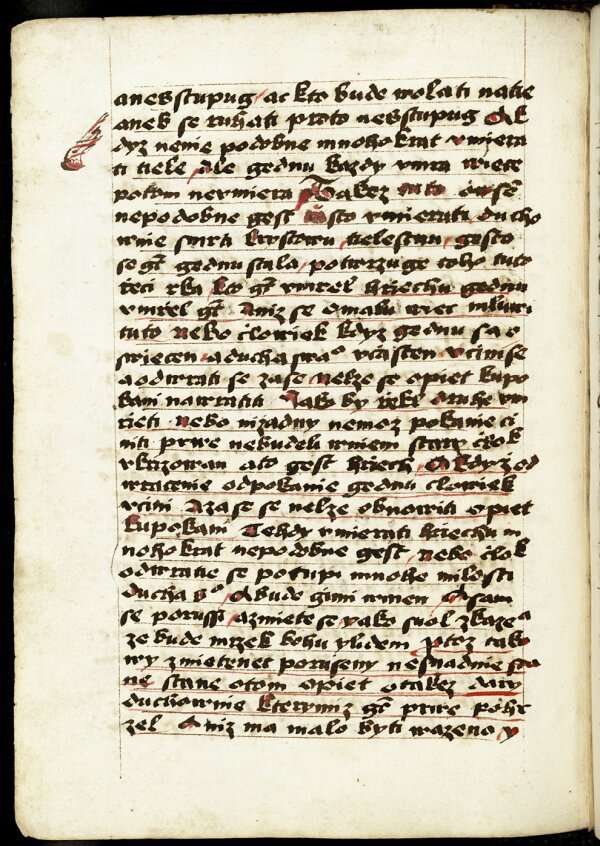 anebstupug ac kto bude wolati natie
aneb se ruhati proto nebstupug A k
dyz nenie podobne mnoho krat vmiera
ti tiele Ale gednu kazdy vmra wiece
potom nevmiera Takez tuto
nepodobne gest často vmierati ducho
wnie smrti krystowu tielestnu gesto
se gt gednu stala potwrzuge toho tuto
řeci rka ko gt vmrel hřiechu gednu
vmrel gt Aniz se omalu wiec mluwi
tuto nebo človiek kdyz gednu sa o
swiecen a ducha swao vczasten vcinise
a odwrati se zase nelze se opiet kupo
kani nawratiti Jako by řekl druhe vm
řieti nebo nizadny nemoz pokanie ci
niti prwe nebudeli wniem stary člok
vkrizowan ato gest hřiech A kdyz od
wracenie odpokanie gednu clowiek
vcini A zase se nelze obnowiti opiet
kupokani Tehdy vmierati hřiechu m
nohokrat nepodobne gest nebo člok
odwratie se potupi mnohe milosti
ducha so A bude gimi winen A sam
se porussi azmiete se yako suol zkazea
ze bude mrzek bohu ylidem ptoz tako
wy zmietenec poruseny nesnadnie sta
ne stane otom opiet otakez dary
duchownie kterymiz gt prwe pohr
zel A niz ma malo byti wazeno y